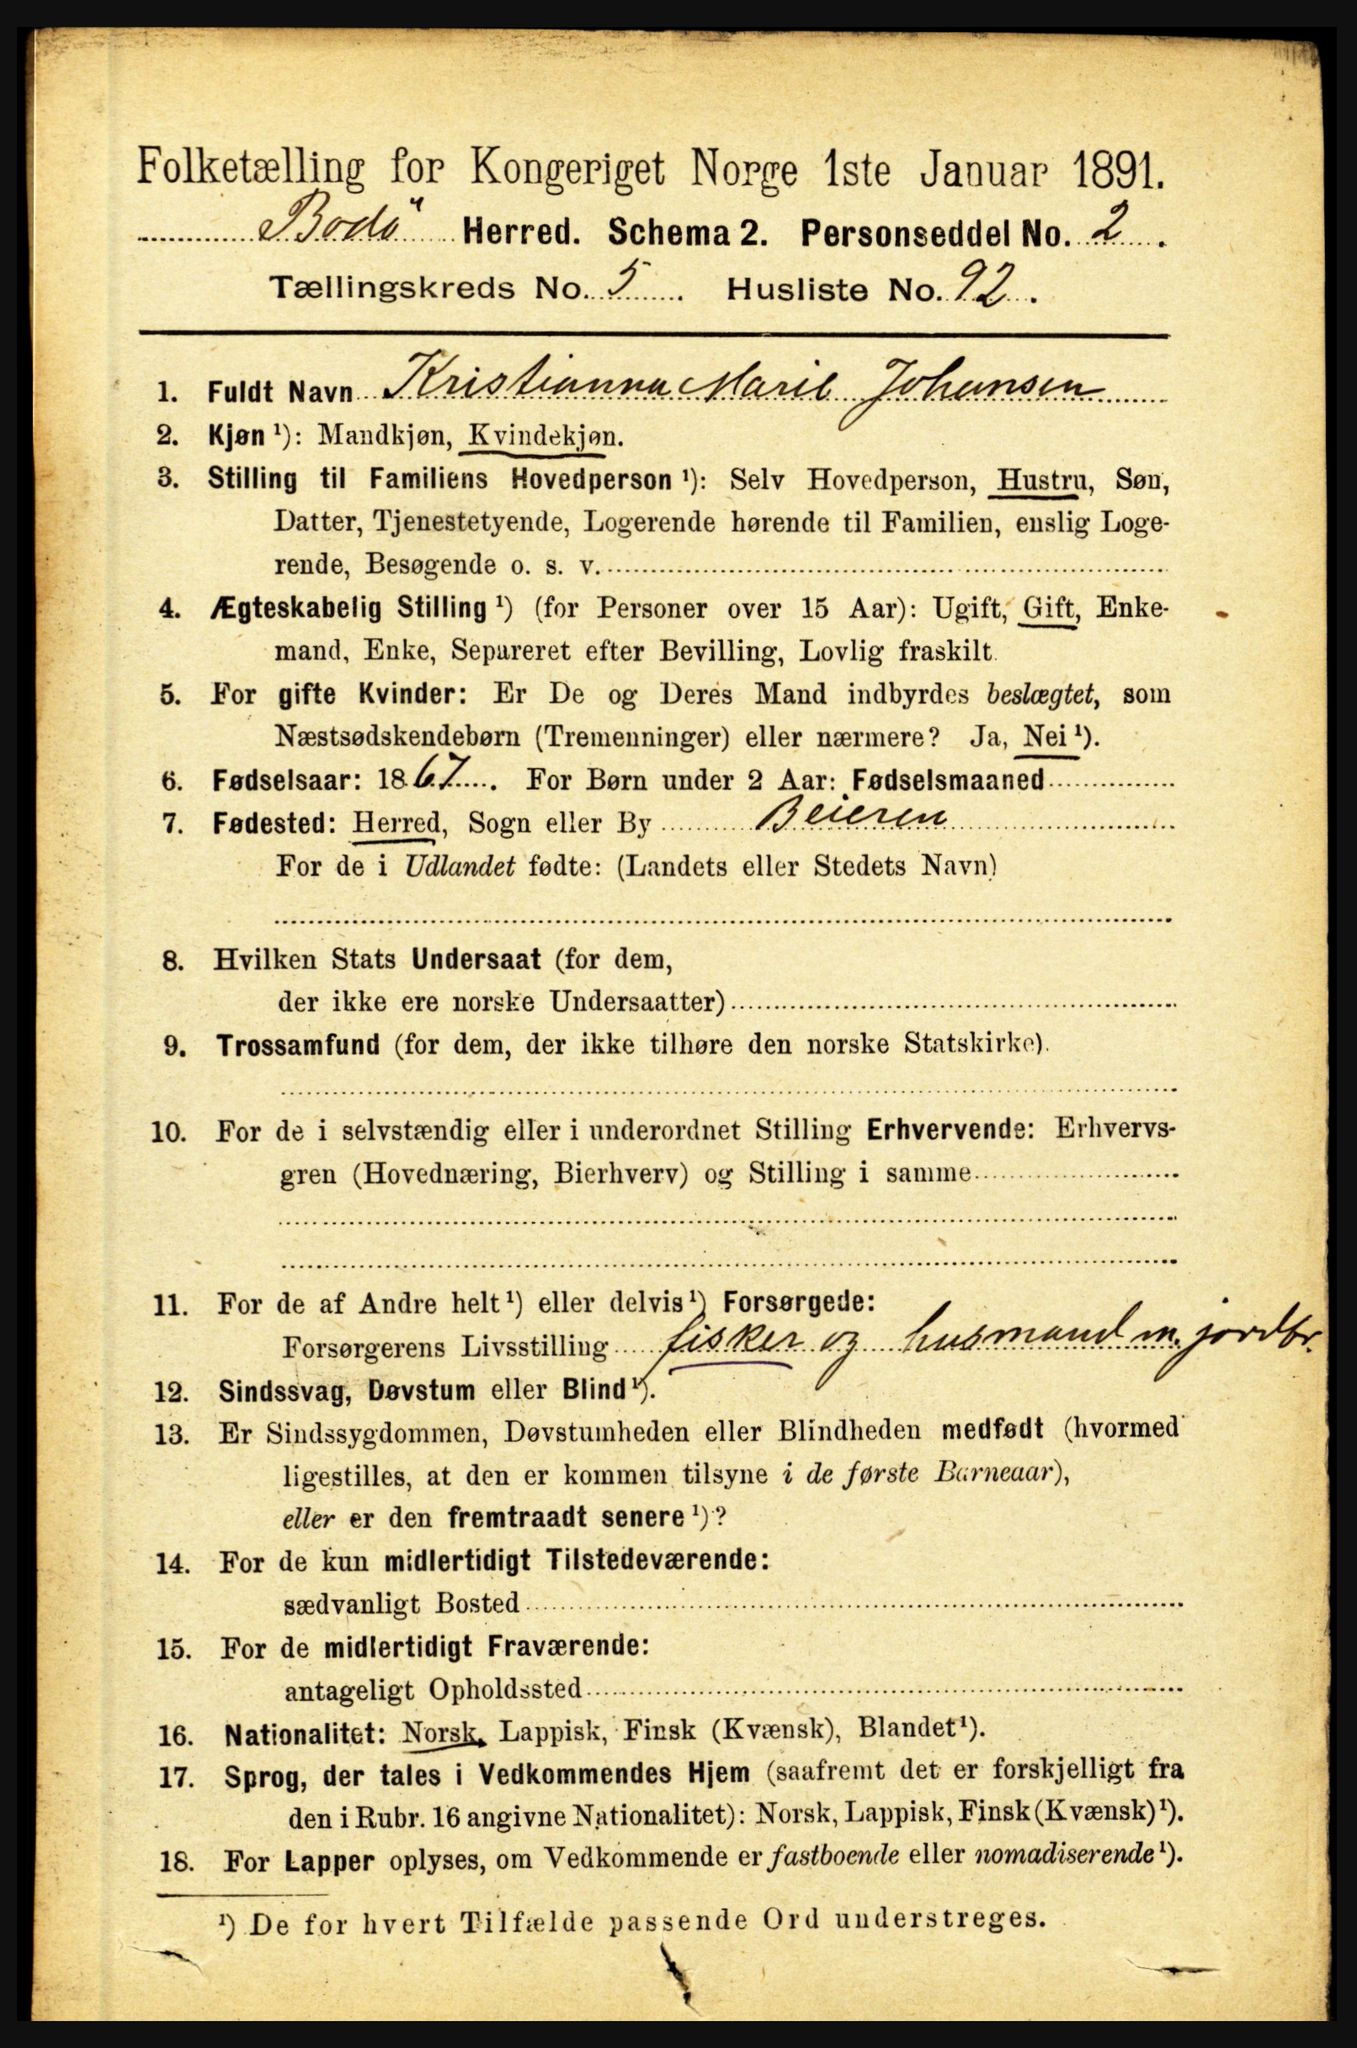 Folketælling for Kongeriget Norge 1ste Januar 1891.
Bodö Herred. Schema 2. Personseddel No. 2.
Tællingskreds No. 5. Husliste No. 92.
1. Fuldt Navn Kristianna Marie Johansen
2. Kjøn ¹): Mandkjøn, Kvindekjøn.
3. Stilling til Familiens Hovedperson ¹): Selv Hovedperson, Hustru, Søn,
Datter, Tjenestetyende, Logerende hørende til Familien, enslig Loge-
rende, Besøgende o. s. v.
4. Ægteskabelig Stilling ¹) (for Personer over 15 Aar): Ugift, Gift, Enke-
mand, Enke, Separeret efter Bevilling, Lovlig fraskilt.
5. For gifte Kvinder: Er De og Deres Mand indbyrdes beslægtet, som
Næstsødskendebørn (Tremenninger) eller nærmere? Ja, Nei ¹).
6. Fødselsaar: 1867. For Børn under 2 Aar: Fødselsmaaned
7. Fødested: Herred, Sogn eller By Beieren
For de i Udlandet fødte: (Landets eller Stedets Navn)
8. Hvilken Stats Undersaat (for dem,
der ikke ere norske Undersaatter)
9. Trossamfund (for dem, der ikke tilhøre den norske Statskirke).
10. For de i selvstændig eller i underordnet Stilling Erhvervende: Erhvervs-
gren (Hovednæring, Bierhverv) og Stilling i samme
11. For de af Andre helt ¹) eller delvis ¹) Forsørgede:
Forsørgerens Livsstilling fisker og husmand m. jordbr.
12. Sindssvag, Døvstum eller Blind ¹).
13. Er Sindssygdommen, Døvstumheden eller Blindheden medfødt (hvormed
ligestilles, at den er kommen tilsyne i de første Barneaar),
eller er den fremtraadt senere ¹)?
14. For de kun midlertidigt Tilstedeværende:
sædvanligt Bosted
15. For de midlertidigt Fraværende:
antageligt Opholdssted
16. Nationalitet: Norsk, Lappisk, Finsk (Kvænsk), Blandet ¹).
17. Sprog, der tales i Vedkommendes Hjem (saafremt det er forskjelligt fra
den i Rubr. 16 angivne Nationalitet): Norsk, Lappisk, Finsk (Kvænsk) ¹).
18. For Lapper oplyses, om Vedkommende er fastboende eller nomadiserende ¹).
¹) De for hvert Tilfælde passende Ord understreges.